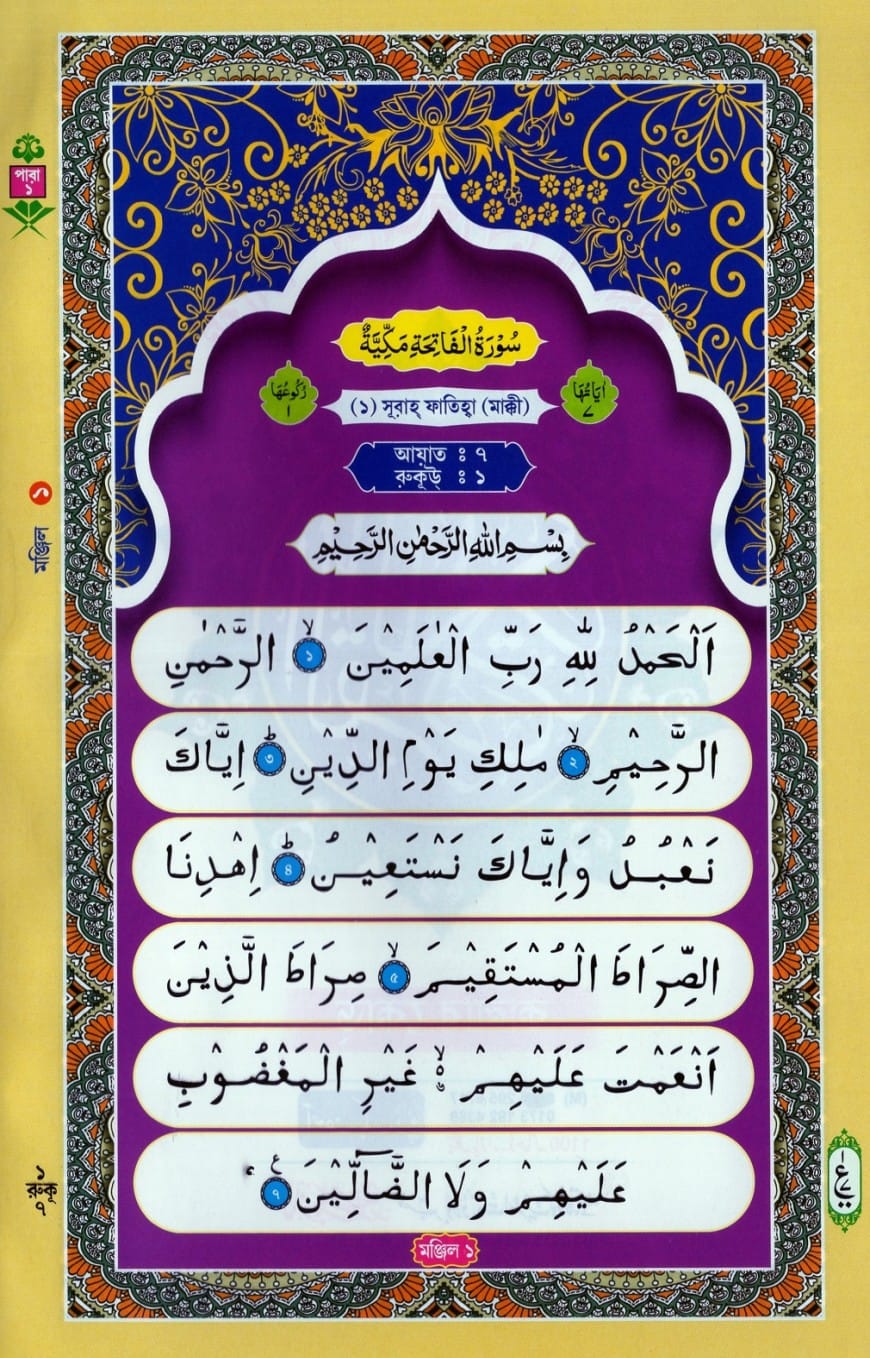 পারা
১
سُوْرَةُ الْفَاتِحَةِ مَكِّيَّةٌ
اٰيَاتُهَا
٧
(১) সূরাহ্ ফাতিহ্বা (মাক্কী)
رُكُوْعُهَا
١
আয়াত ঃ ৭
রুকূউ্ ঃ ১
بِسْمِ اللّٰهِ الرَّحْمٰنِ الرَّحِيْمِ
اَلْحَمْدُ لِلّٰهِ رَبِّ الْعٰلَمِيْنَ ۙ ১ الرَّحْمٰنِ
الرَّحِيْمِ ۙ ২ مٰلِكِ يَوْمِ الدِّيْنِ ؕ ৩ اِيَّاكَ
نَعْبُدُ وَاِيَّاكَ نَسْتَعِيْنُ ؕ ৪ اِهْدِنَا
الصِّرَاطَ الْمُسْتَقِيْمَ ۙ ৫ صِرَاطَ الَّذِيْنَ
اَنْعَمْتَ عَلَيْهِمْ ۙ۬ۦ غَيْرِ الْمَغْضُوْبِ
عَلَيْهِمْ وَلَا الضَّآلِّيْنَ ৭
মঞ্জিল ১
মঞ্জিল ১
১
রুকূ
৭